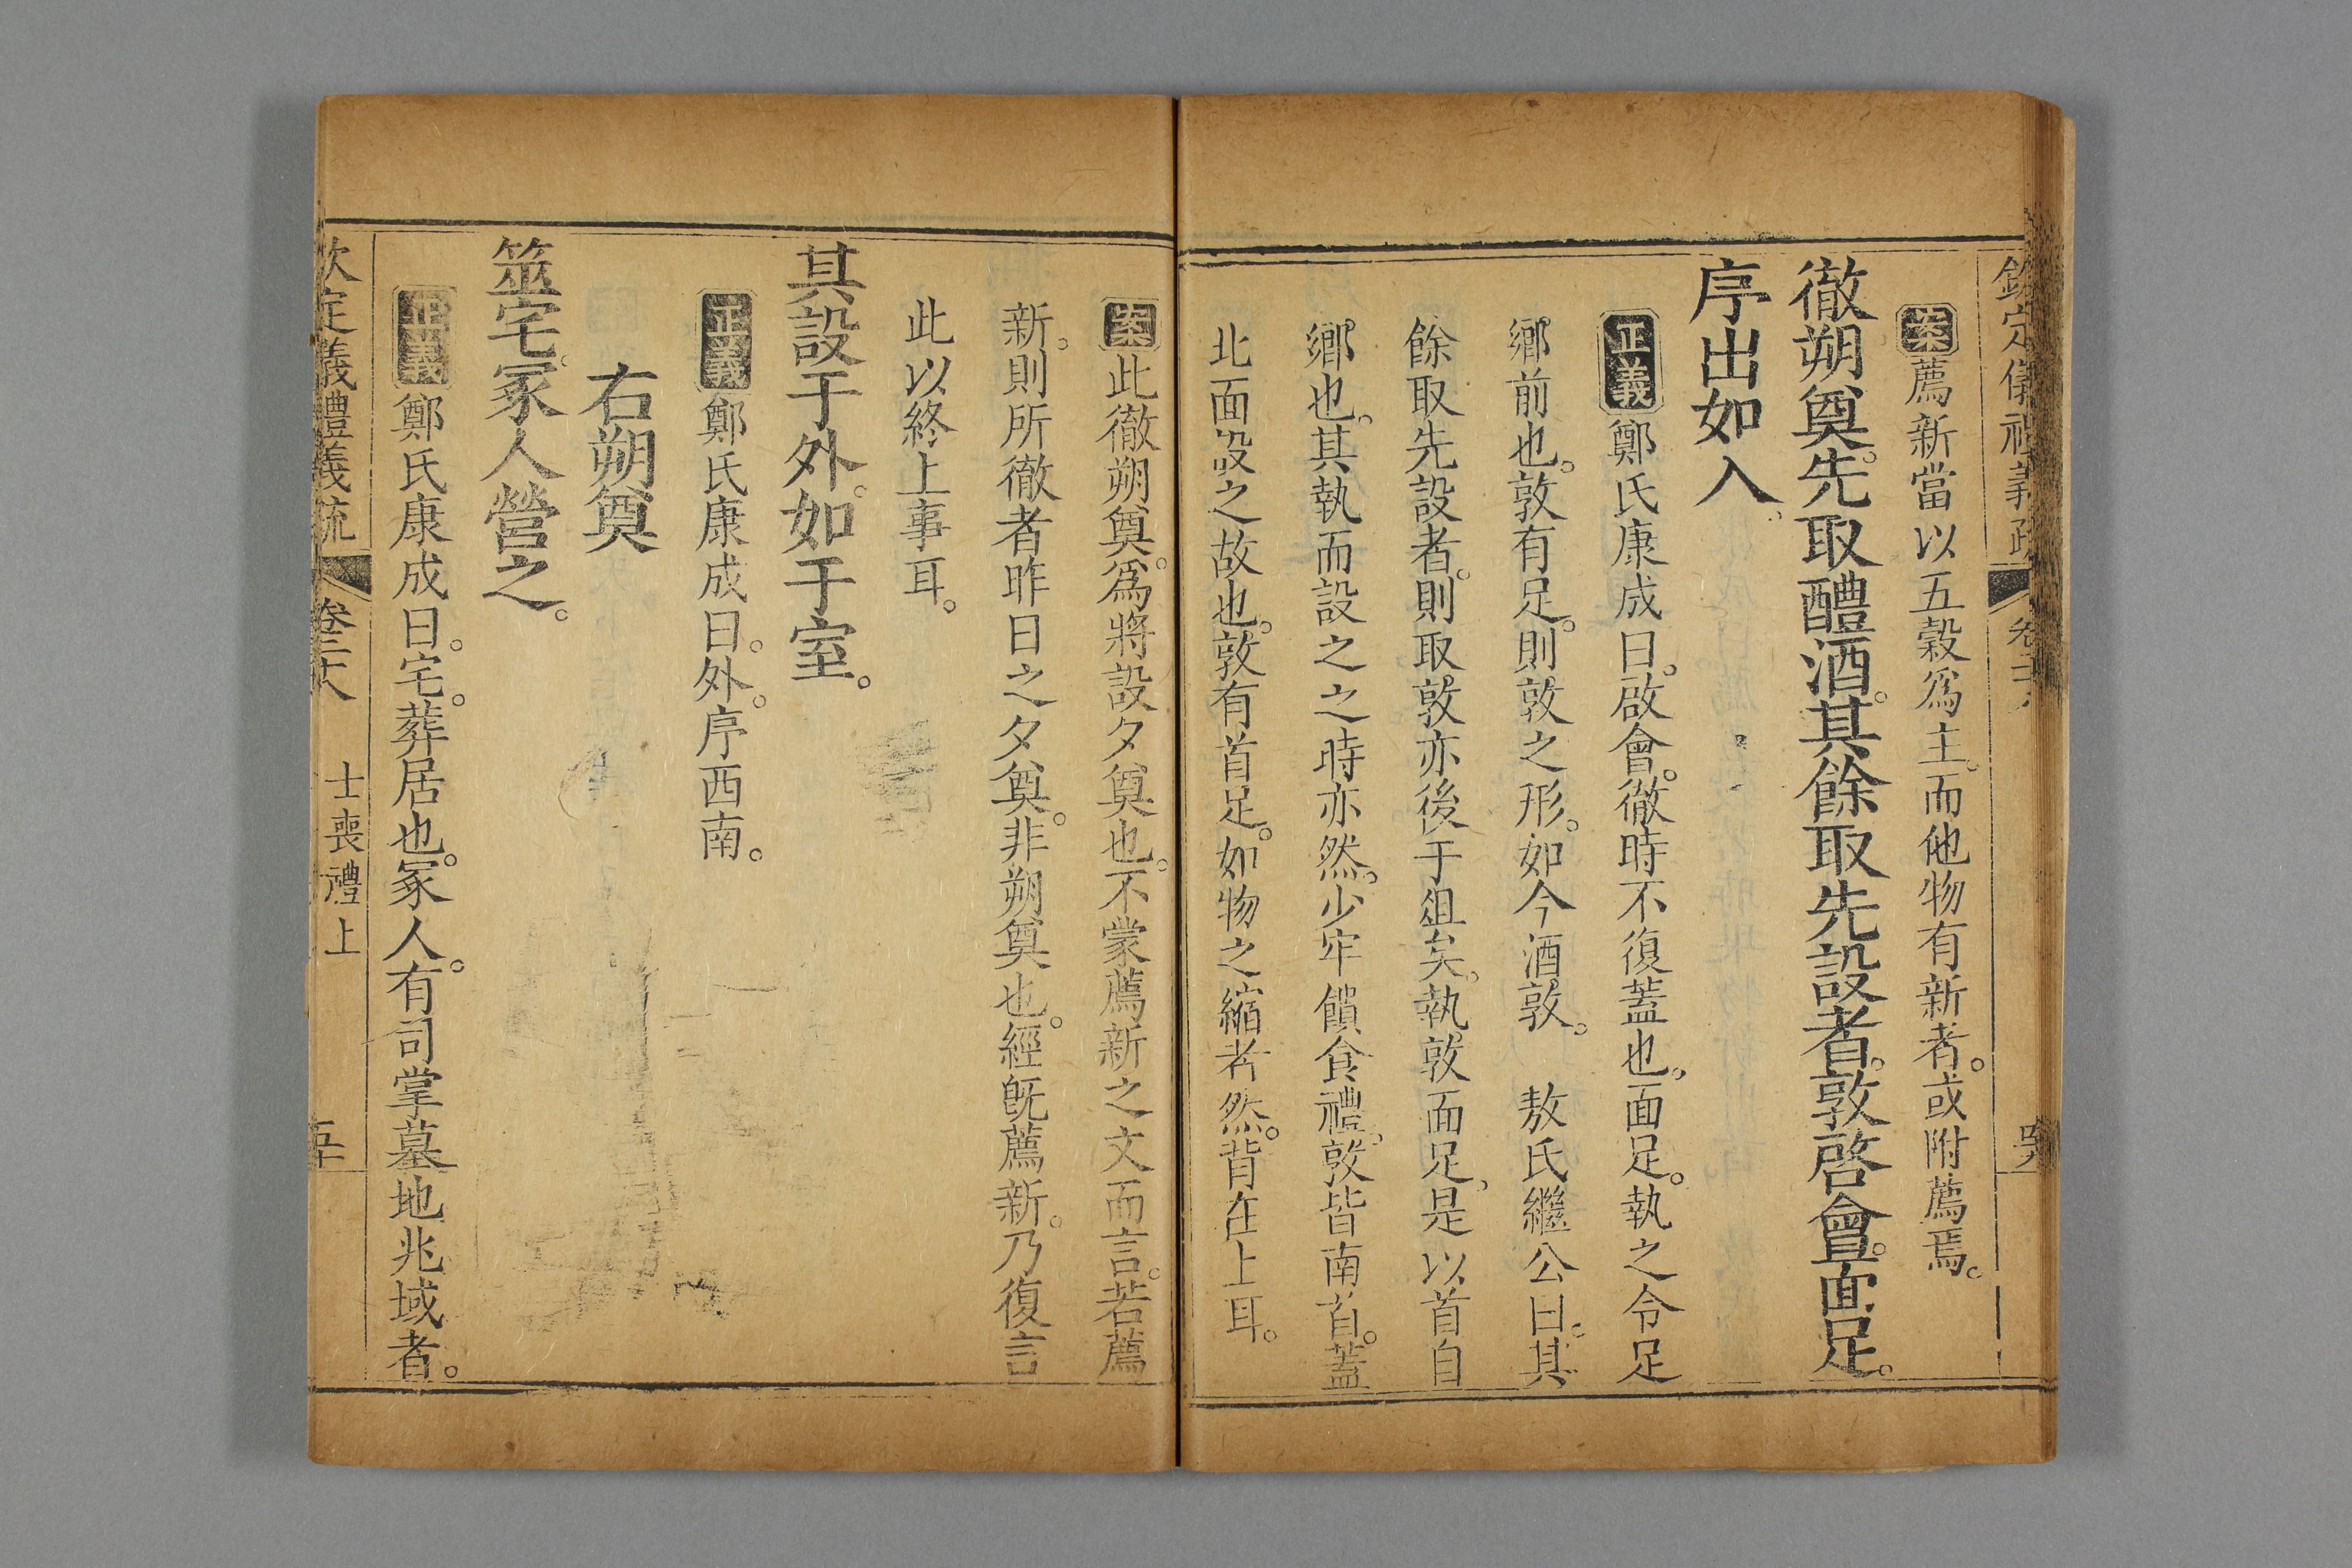 欽定儀禮義疏 卷二十八
案薦新當以五穀爲主。而他物有新者。或附薦焉。
徹朔奠。先取醴酒。其餘取先設者。敦啓會。面足。
序出如入。
正義鄭氏康成曰。啟會。徹時不復蓋也。面足。執之令足
鄉前也。敦有足。則敦之形。如今酒敦。 敖氏繼公曰。其
餘取先設者。則取敦亦後于俎矣。執敦面足。是以首自
鄉也。其執而設之之時亦然。少牢饋食禮。敦皆南首。蓋
北面設之故也。敦有首足。如物之縮者然。背在上耳。
案此徹朔奠。爲將設夕奠也。不蒙薦新之文而言。若薦
新。則所徹者昨日之夕奠。非朔奠也。經旣薦新。乃復言
此以終上事耳。
其設于外。如于室。
正義鄭氏康成曰。外。序西南。
右朔奠
筮宅。冢人營之。
正義鄭氏康成曰。宅。葬居也。冢人。有司掌墓地兆域者。
欽定義禮義疏 卷二十八 士喪禮上 五十